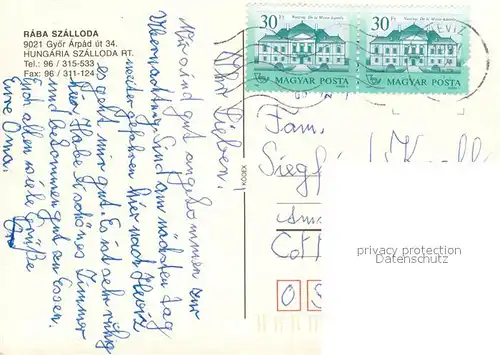 RÁBA SZÁLLODA
9021 Győr Árpád út 34.
HUNGÁRIA SZÁLLODA RT.
Tel.: 96 / 315-533
Fax: 96 / 311-124
Ihr Lieben!
Wir sind gut angekommen zur
Übernachtung. Sind am nächsten Tag
weitergefahren hier nach Heviz
es geht mir gut. Es ist sehr ruhig
hier. Habe schönes Zimmer
und bekommen gut zu Essen.
Euch allen viele Grüße
Eure Oma.
30 Ft
MAGYAR POSTA
30 Ft
MAGYAR POSTA
KODEX
Fam.
Siegf
Cott
O S
privacy protection
Datenschutz